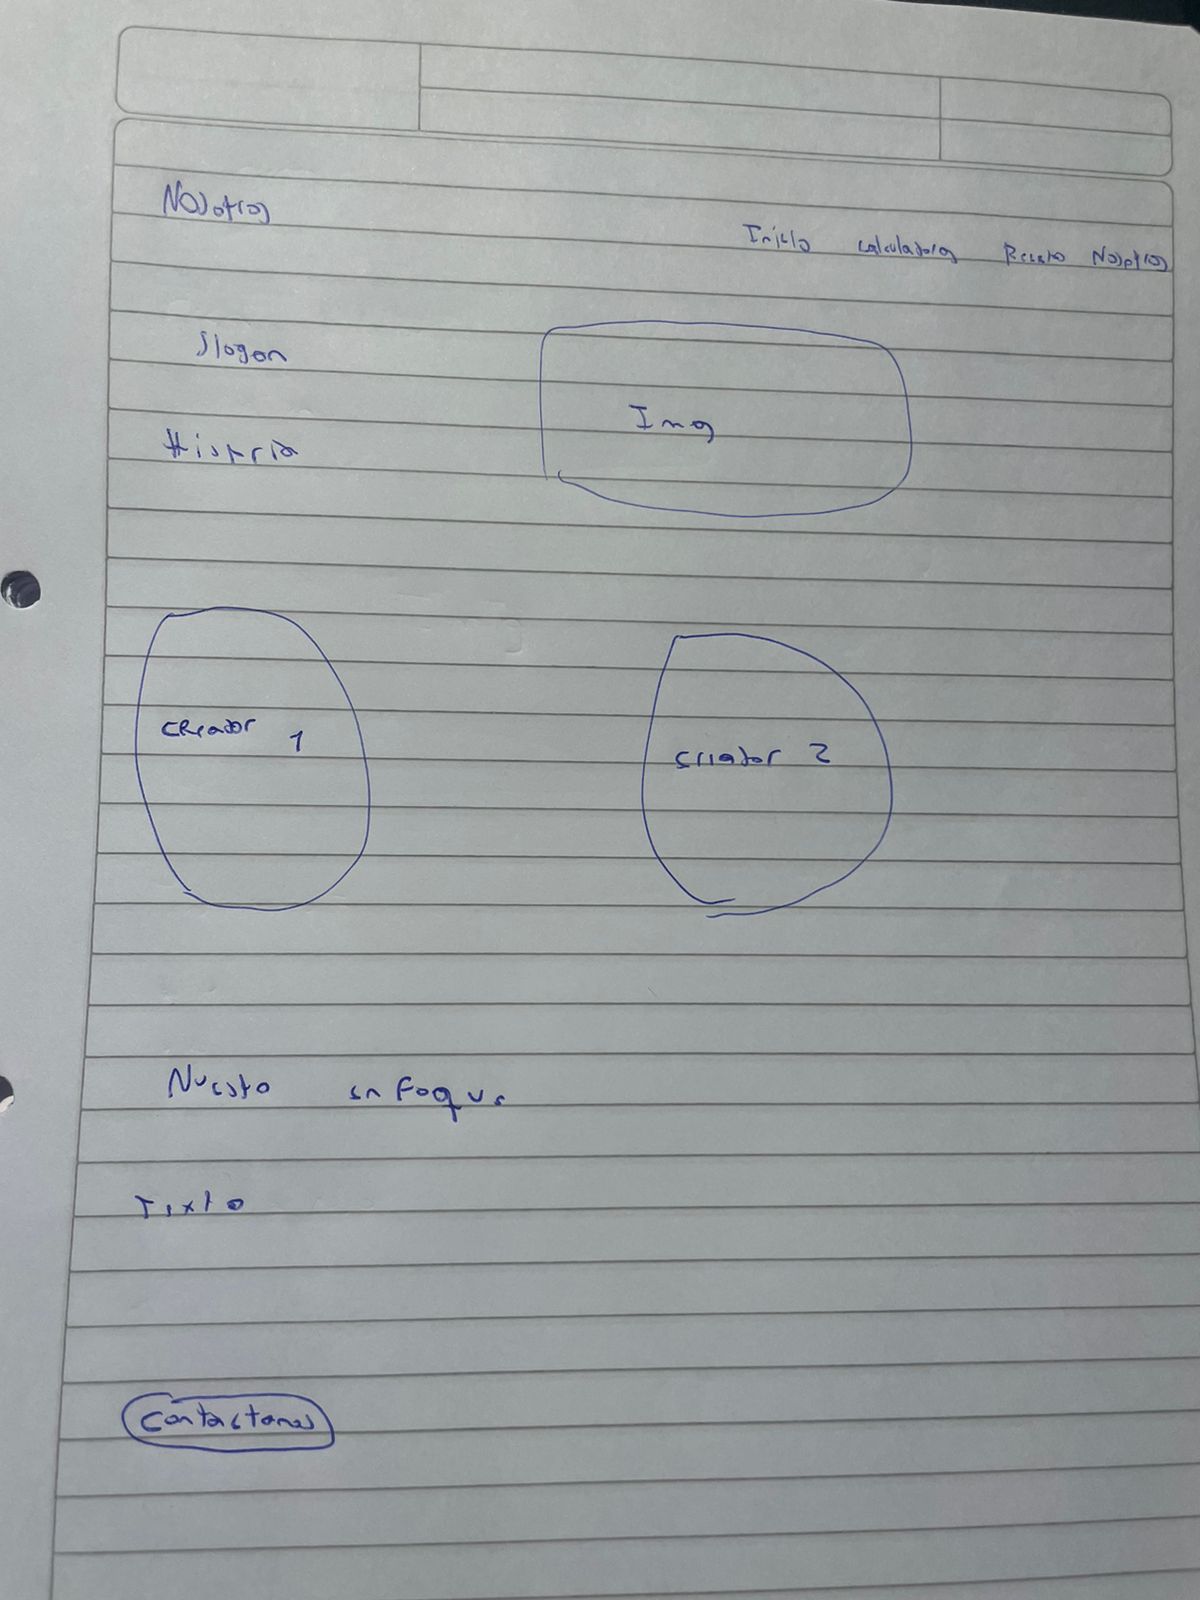 Nosotros
Inicio calculadoras Nosotros
Slogan
Img
Historia
creador 1
creador 2
Nuestro enfoque
Texto
Contactanos